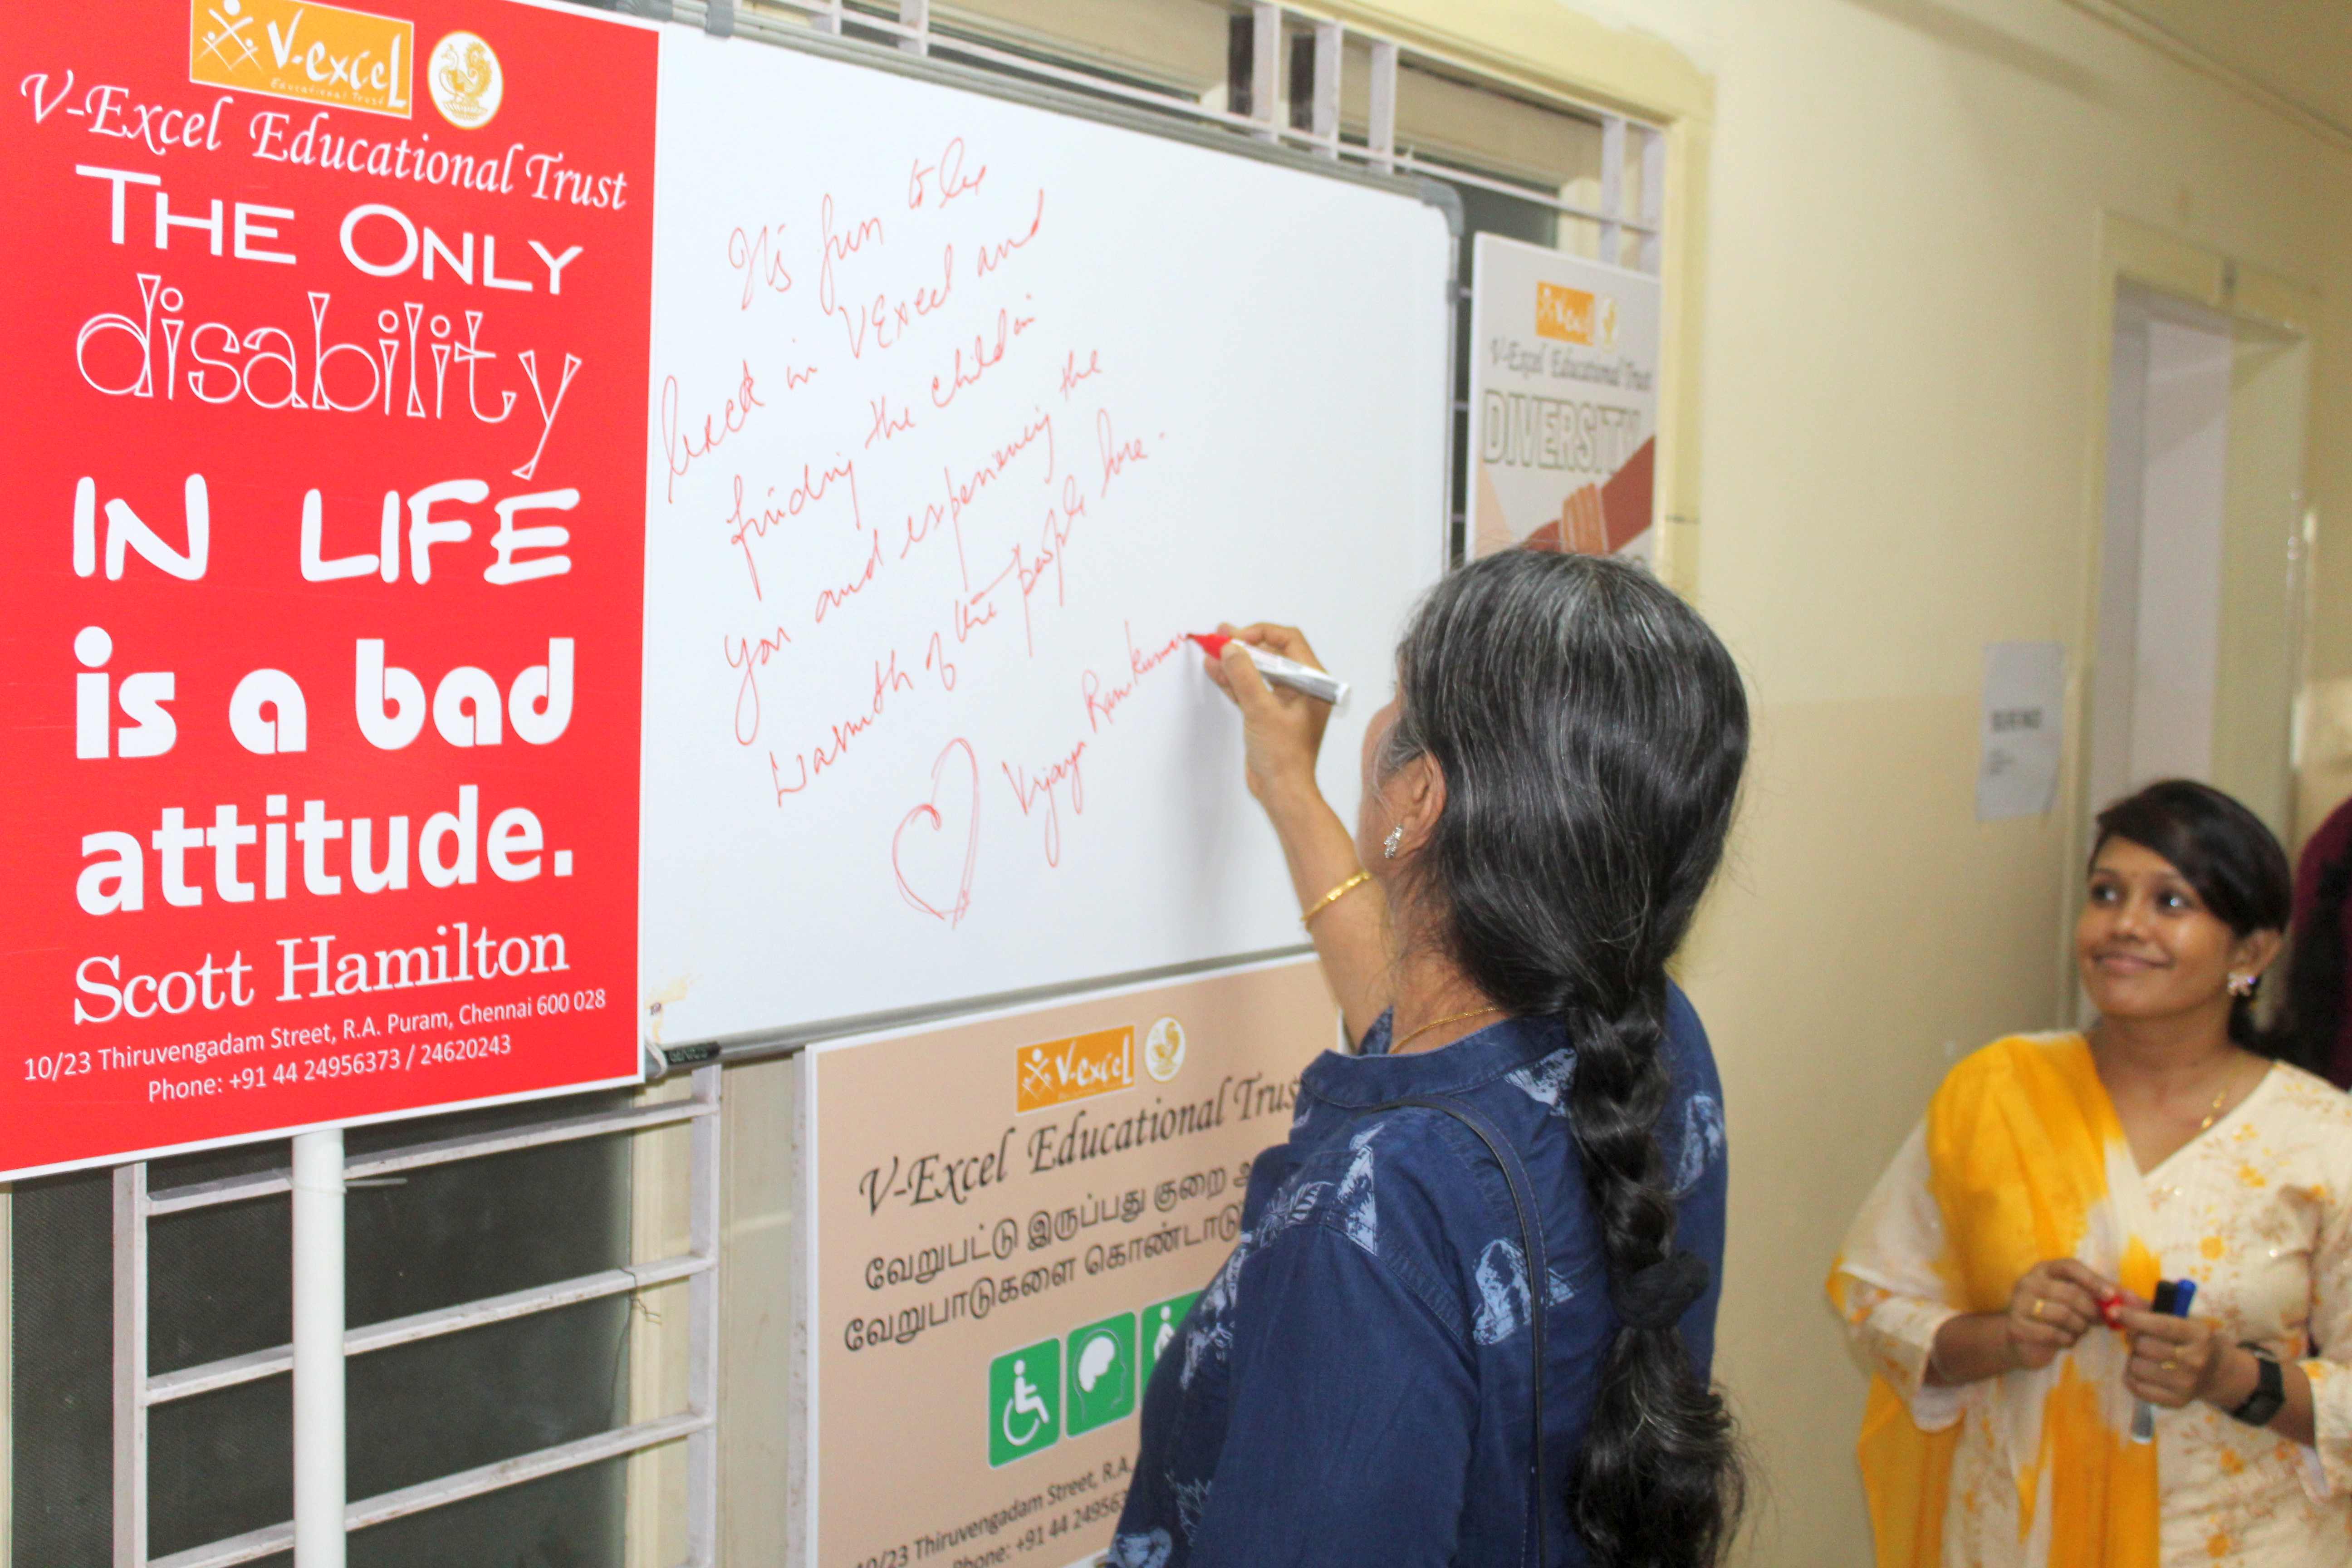 V-Excel
Educational Trust
V-Excel Educational Trust
THE ONLY
disability
IN LIFE
is a bad
attitude.
Scott Hamilton
10/23 Thiruvengadam Street, R.A. Puram, Chennai 600 028
Phone: +91 44 24956373 / 24620243
It's fun to be
back in VExcel and
finding the child in
you and experiencing the
warmth of the people here.
Vijaya Ramkumar
V-Excel
V-Excel Educational Trust
DIVERSITY
V-Excel
V-Excel Educational Trus
வேறுபட்டு இருப்பது குறை அ
வேறுபாடுகளை கொண்டாடு
10/23 Thiruvengadam Street, R.A.
Phone: +91 44 249563